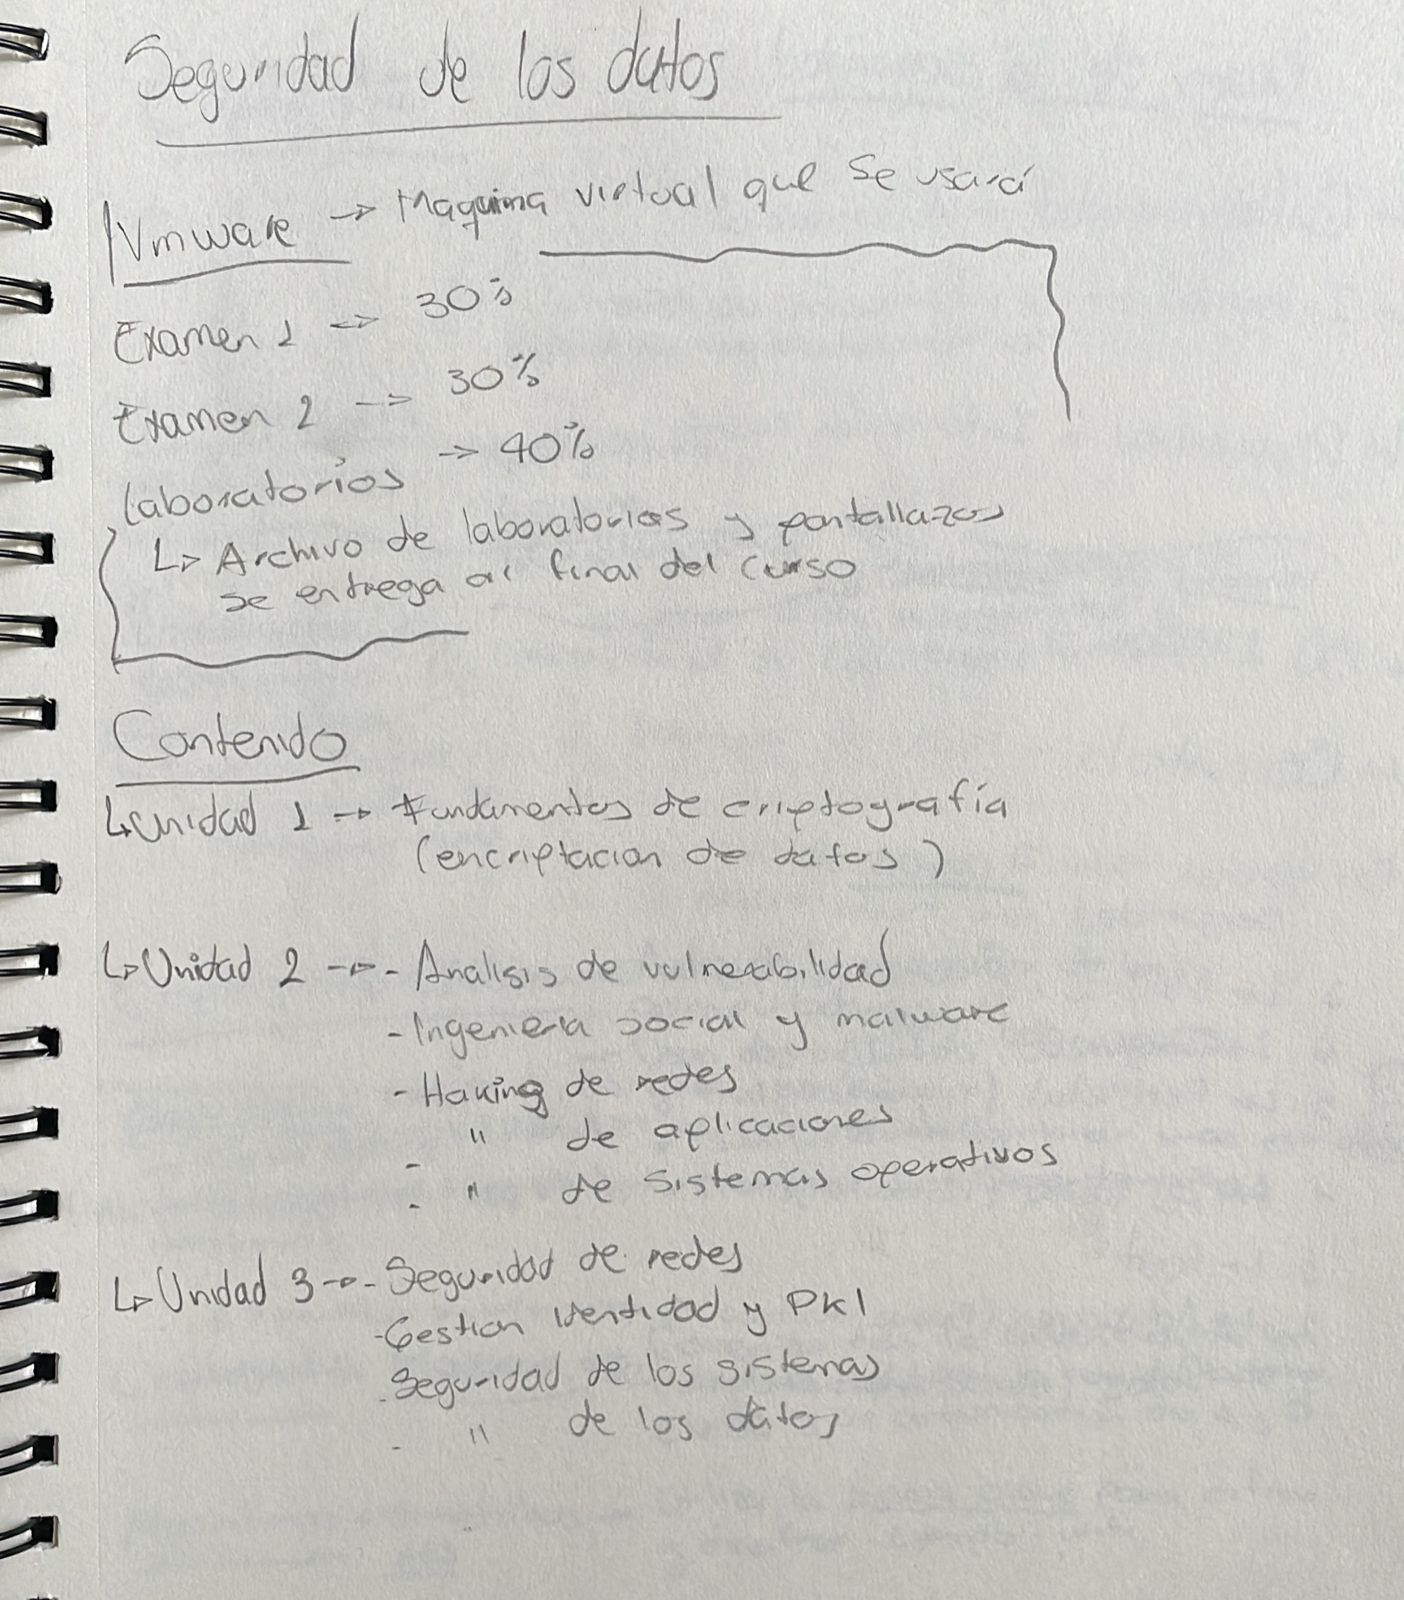 Seguridad de los datos
Vmware -> Maquina virtual que se usará
Examen 1 -> 30%
Examen 2 --> 30%
Laboratorios -> 40%
↳ Archivo de laboratorios y pantallazos
se entrega al final del curso
Contenido
↳ Unidad 1 -> Fundamentos de criptografía
(encriptacion de datos)
↳ Unidad 2 -> - Analisis de vulnerabilidad
- Ingenieria social y malware
- Haking de redes
- " de aplicaciones
- " de sistemas operativos
↳ Unidad 3 -> - Seguridad de redes
- Gestion identidad y PKI
- Seguridad de los sistemas
- " de los datos